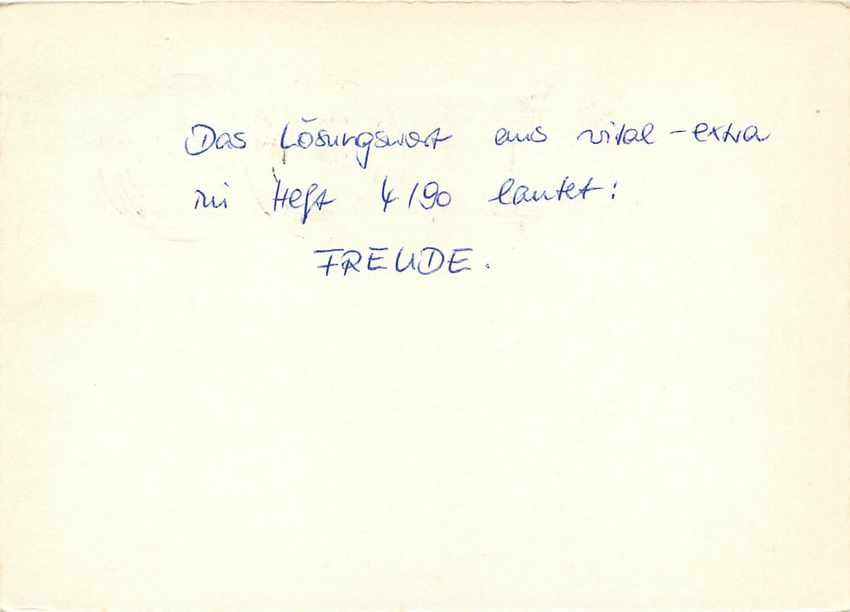 Das Lösungswort aus vital-extra
im Heft 4/90 lautet:
FREUDE.